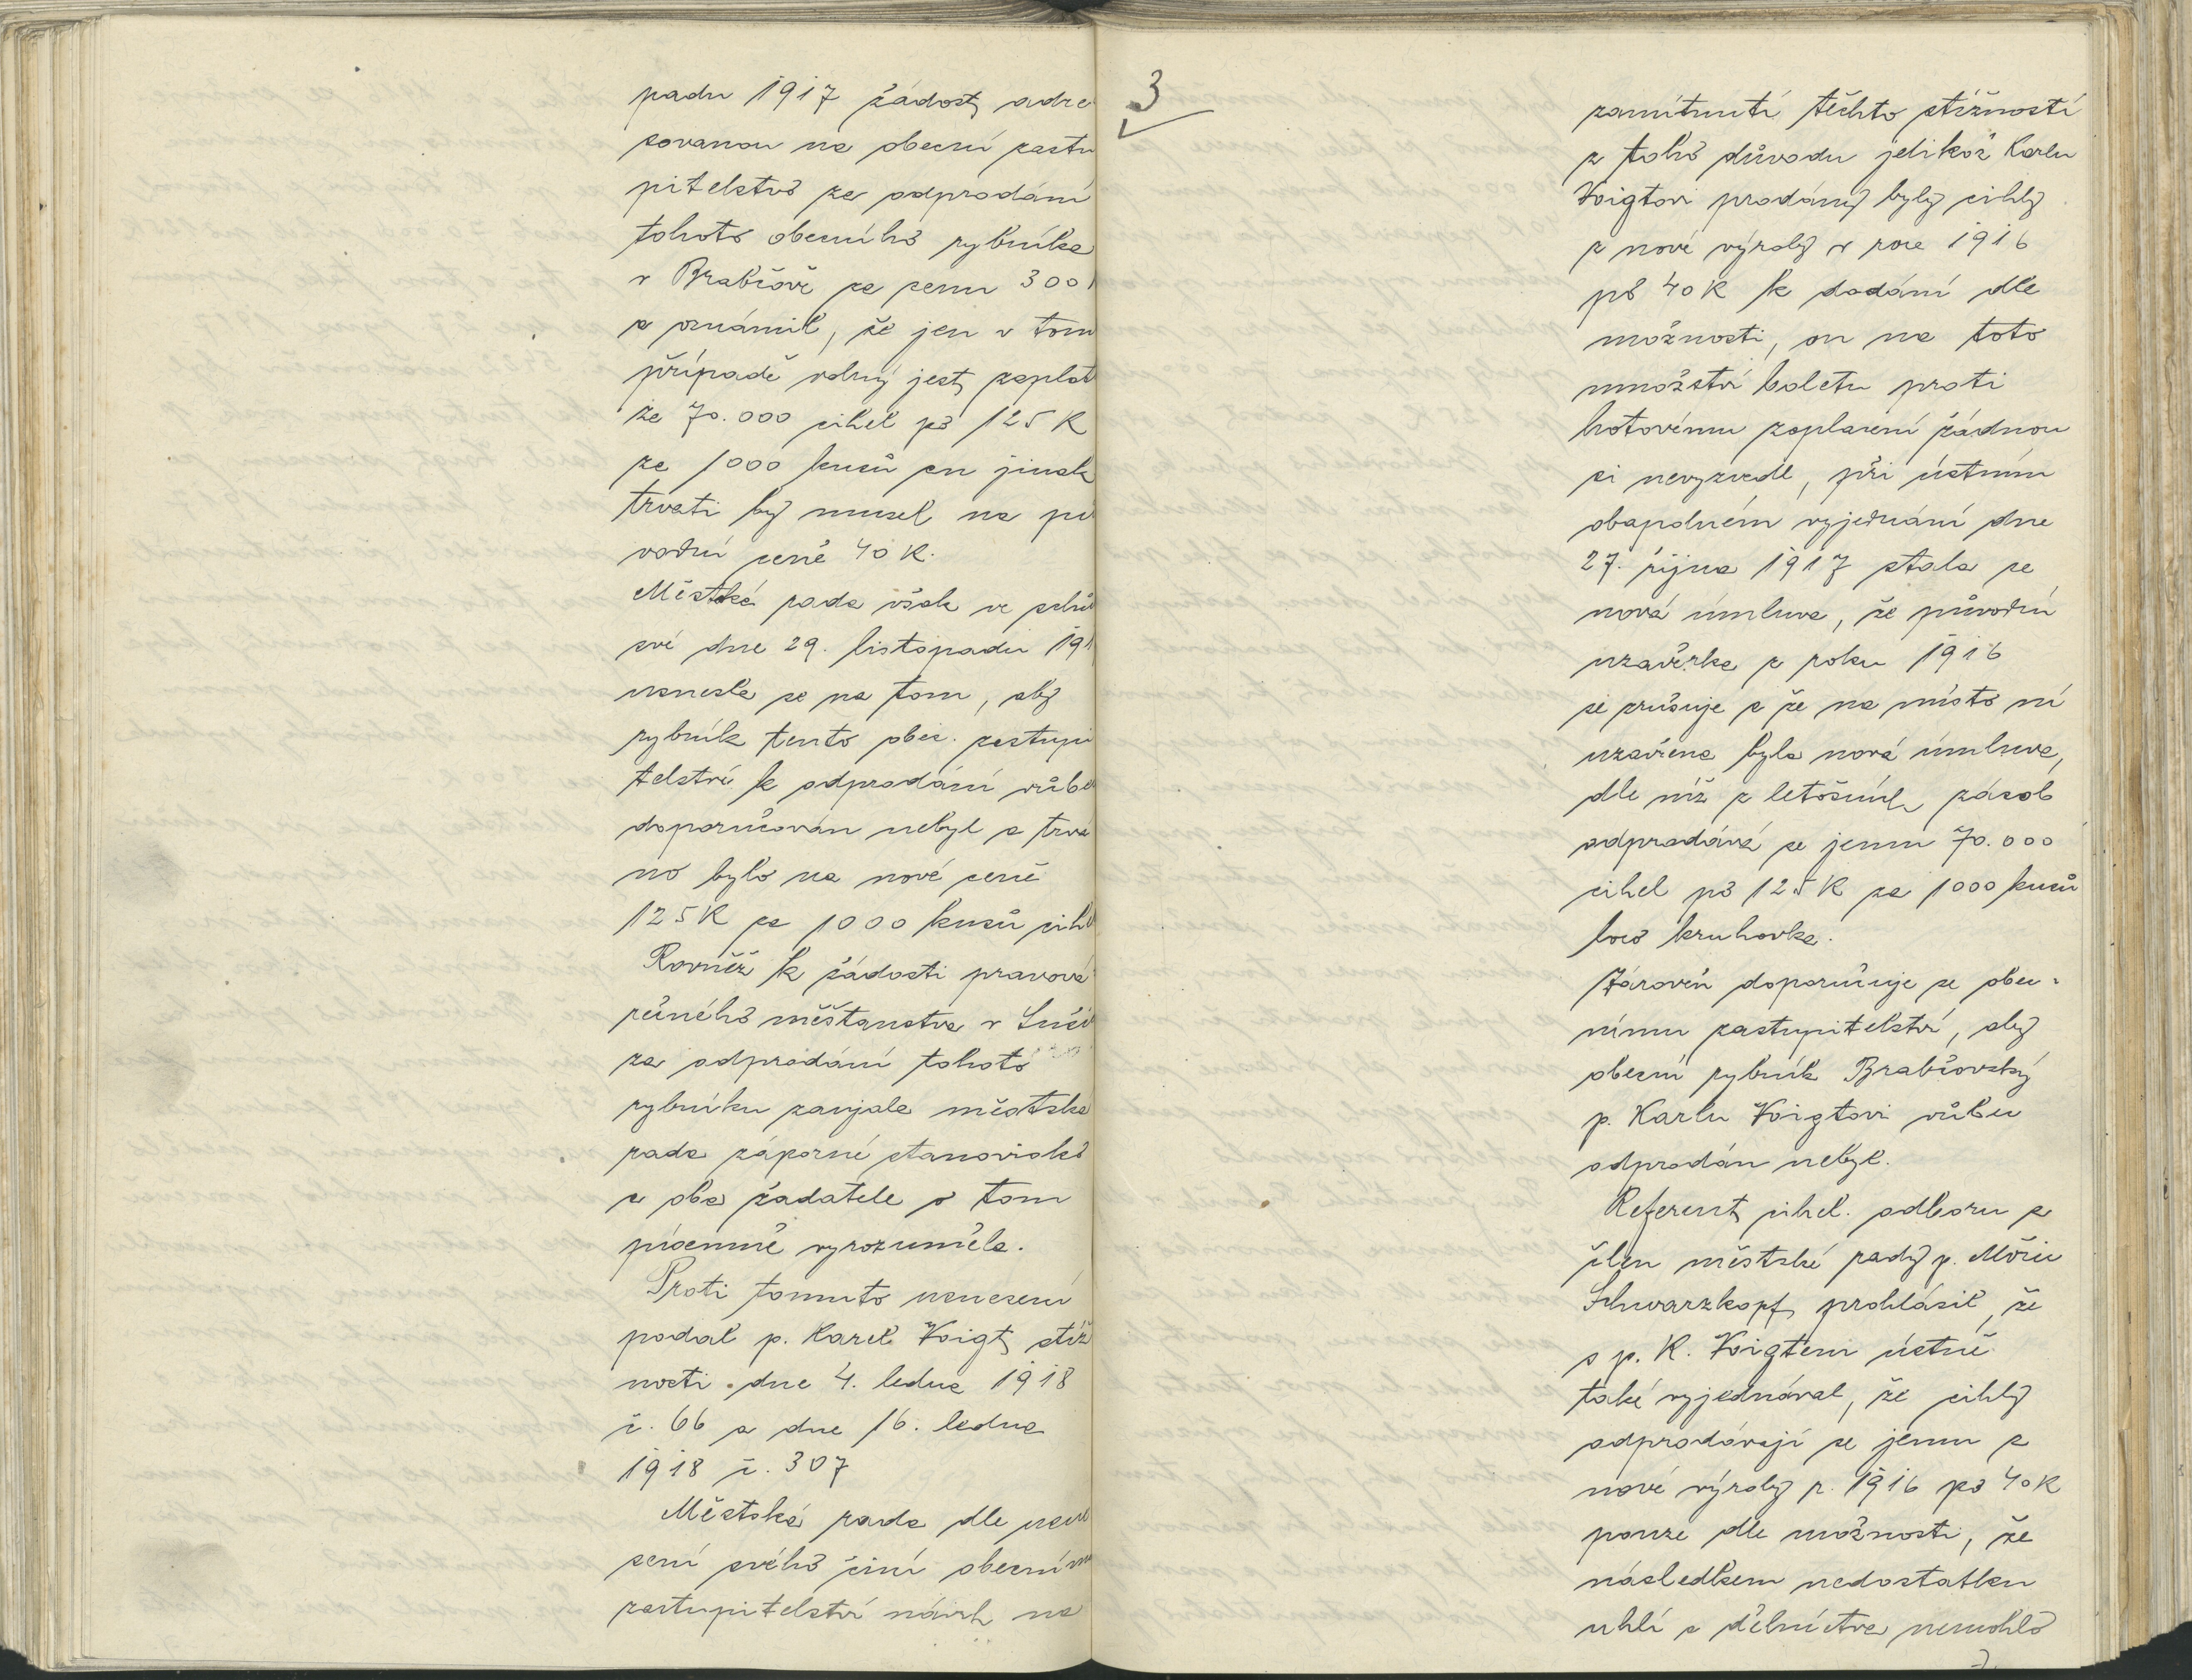 padu 1917 žádost adre
sovanou na obecní zastu
pitelstvo za odprodání
tohoto obecního rybníka
v Brabčově za cenu 300
a oznámil, že jen v tom
případě volný jest zaplat
za 70.000 cihel po 125 K
za 1000 kusů on jinak
trvati by musel na pů
vodní ceně 40 K.
Městská rada však ve schů
své dne 29. listopadu 191
usnesla se na tom, aby
rybník tento obec. zastupi
telství k odprodání vůbe
doporučován nebyl a trvá
no bylo na nové ceně
125 K za 1000 kusů cihe
Rovněž k žádosti pravová
rečného měšťanstva v
za odprodání tohoto
rybníku zaujala městská
rada záporné stanovisko
a oba žadatele o tom
písemně vyrozuměla.
Proti tomuto usnesení
podal p. Karel Voigt stíž
nosti dne 4. ledna 1918
č. 66 a dne 16. ledna
1918 č. 307
Městská rada dle usne
sení svého činí obecnímu
zastupitelství návrh na
3
zamítnutí těchto stížností
z toho důvodu jelikož Karlu
Voigtovi prodány byly cihly
z nové výroby v roce 1916
po 40 K k dodání dle
možnosti, on na toto
množství boletu proti
hotovému zaplacení žádnou
si nevyzvedl, při ústním
obapolném vyjednání dne
27. října 1917 stala se
nová úmluva, že původní
uzavěrka z roku 1916
se zrušuje a že na místo ní
uzavřena byla nová úmluva,
dle níž z letošních zásob
odprodává se jemu 70.000
cihel po 125 K za 1000 kusů
loco kruhovka.
Zároveň doporučuje se obec-
nímu zastupitelství, aby
obecní rybník Brabčovský
p. Karlu Voigtovi vůbec
odprodán nebyl.
Referent cihel. odboru a
člen městské rady p. Móric
Schwarzkopf prohlásil, že
s p. K. Voigtem ústně
také vyjednával, že cihly
odprodávají se jemu z
nové výroby r. 1916 po 40 K
pouze dle možnosti, že
následkem nedostatku
uhlí a dělnictva nemohlo